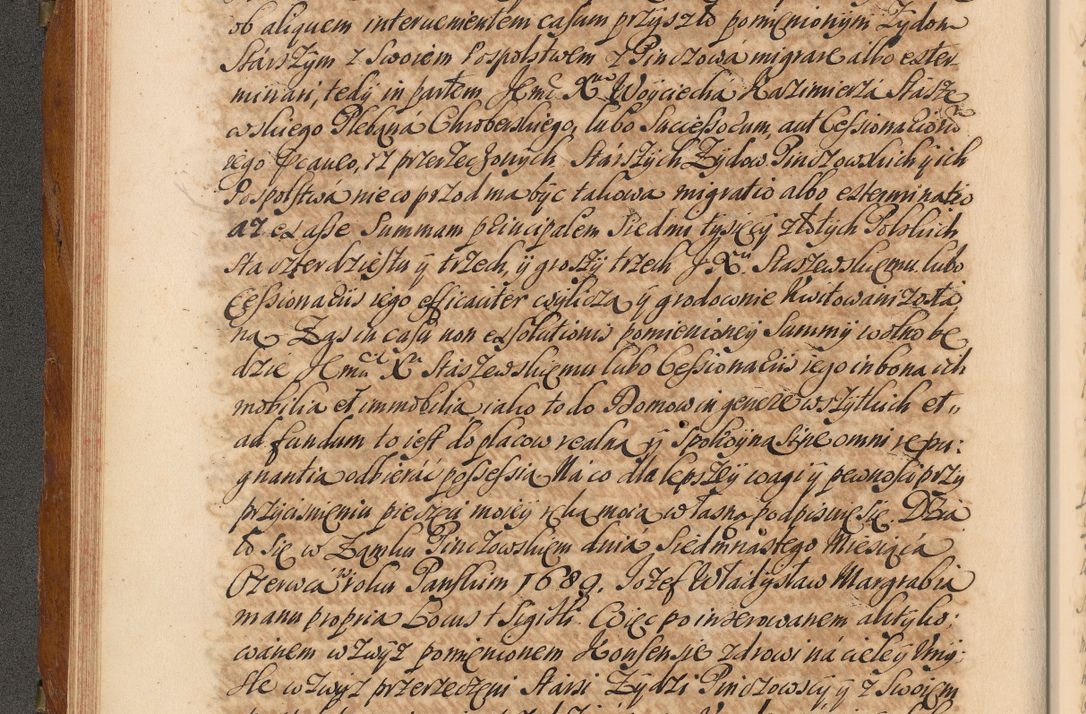 ob aliquem intervenientem casum przyszło pomienionym Zydom
Stárszym z Swoiem Pospolstwem z Pinczowá migrare albo exter
minari, tedy in partem Jemci Xa Woyciecha Kazimierza Stásze
wskiego Plebaná Chroberskiego, lubo Successorum, aut Cessionariorū
iego Prawo, iz przerzeczonych Stárszych Zydow Pinczowskich y ich
Pospolstwa nie co przod ma być takowa migratio albo exterminatio
az ex asse Summam principalem Siedmi tysięcy złotych Polskich
sta czterdziestu y trzech, y groszy trzech J Xu Staszewskiemu lubo
Cessionariis iego efficaciter wylicza y grodownie kwitowani zostá
ną Zas in casu non exsolutionis pomienioney Summy wolno be
dzie Jemci Xu Staszewskiemu lubo Cessionariis iego in bona ich
mobilia et immobilia iako to do Domow in genere wszytkich et
ad fundum to iest do placow realna y spokoyna sine omni repu
gnantia odbieráć possessia Ná co dla lepszey wagi y pewności przy
przyciśnieniu pieczęci moiey ręką moią własną podpisuię się Dzia
ło się w Zamku Pinczowskiem dnia Siedmnastego Miesiącá
Czerwca roku Panskim 1689. Jozef Władysław Margrabia
manu propria Locus + Sigilli. Więc po inserowanem aktyko
wánem wzwyz pomienionem Konsensie zdrowi ná ciele y Umy
śle wzwyz przerzeczeni Stársi Zydzi Pinczowscy y z Swoiem